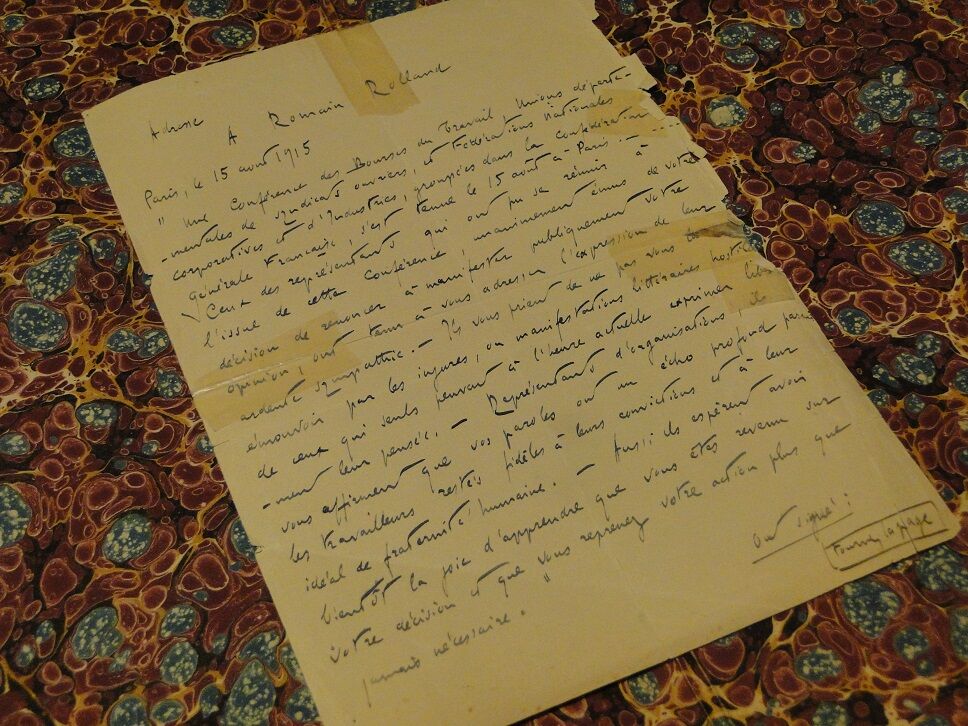 Adresse A Romain Rolland
Paris, le 15 aout 1915
" Une Conférence des Bourses du Travail Unions départe-
-mentales de syndicats ouvriers, et Fédérations Nationales
corporatives et d'Industries, groupées dans la Confédération
générale Française, s'est tenue le 15 août à Paris....
Ceux des représentants qui ont pu se réunir à
l'issue de cette Conférence, unanimement émus de votre
décision de renoncer à manifester publiquement votre
opinion, ont tenu à vous adresser l'expression de leur
ardente sympathie. - Ils vous prient de ne pas vous
émouvoir par les injures, ou manifestations littéraires
de ceux qui seuls peuvent à l'heure actuelle exprimer
-ment leur pensée. - Représentants d'organisations, ils
vous affirment que vos paroles ont un écho profond parmi
les travailleurs restés fidèles à leurs convictions et à leur
idéal de fraternité humaine. - Aussi ils espèrent avoir
bientôt la joie d'apprendre que vous êtes revenu sur
votre décision et que vous reprenez votre action plus que
jamais nécessaire. "
Ont signé :